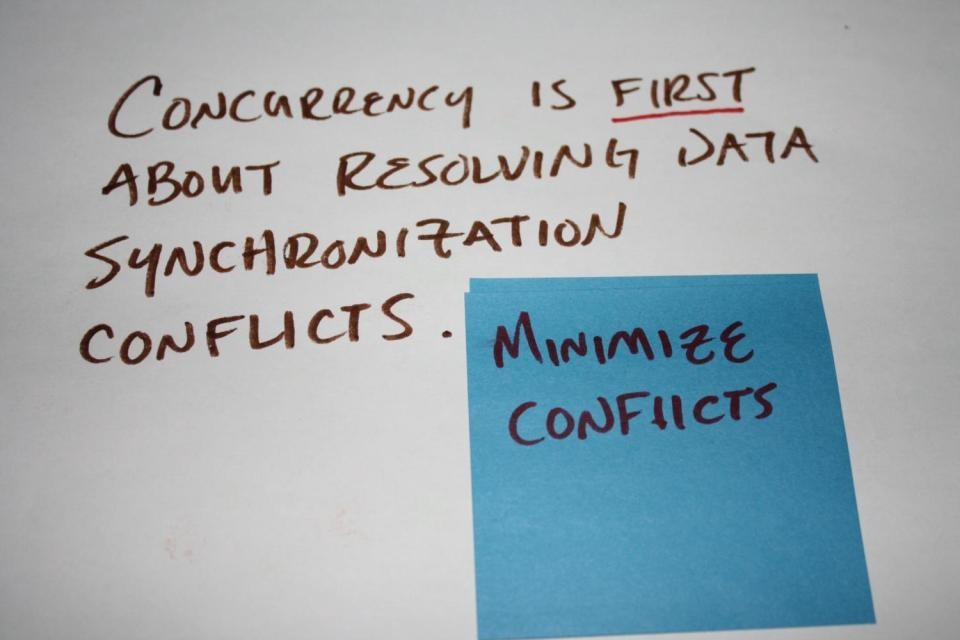 CONCURRENCY IS FIRST
ABOUT RESOLVING DATA
SYNCHRONIZATION
CONFLICTS.
MINIMIZE
CONFLICTS